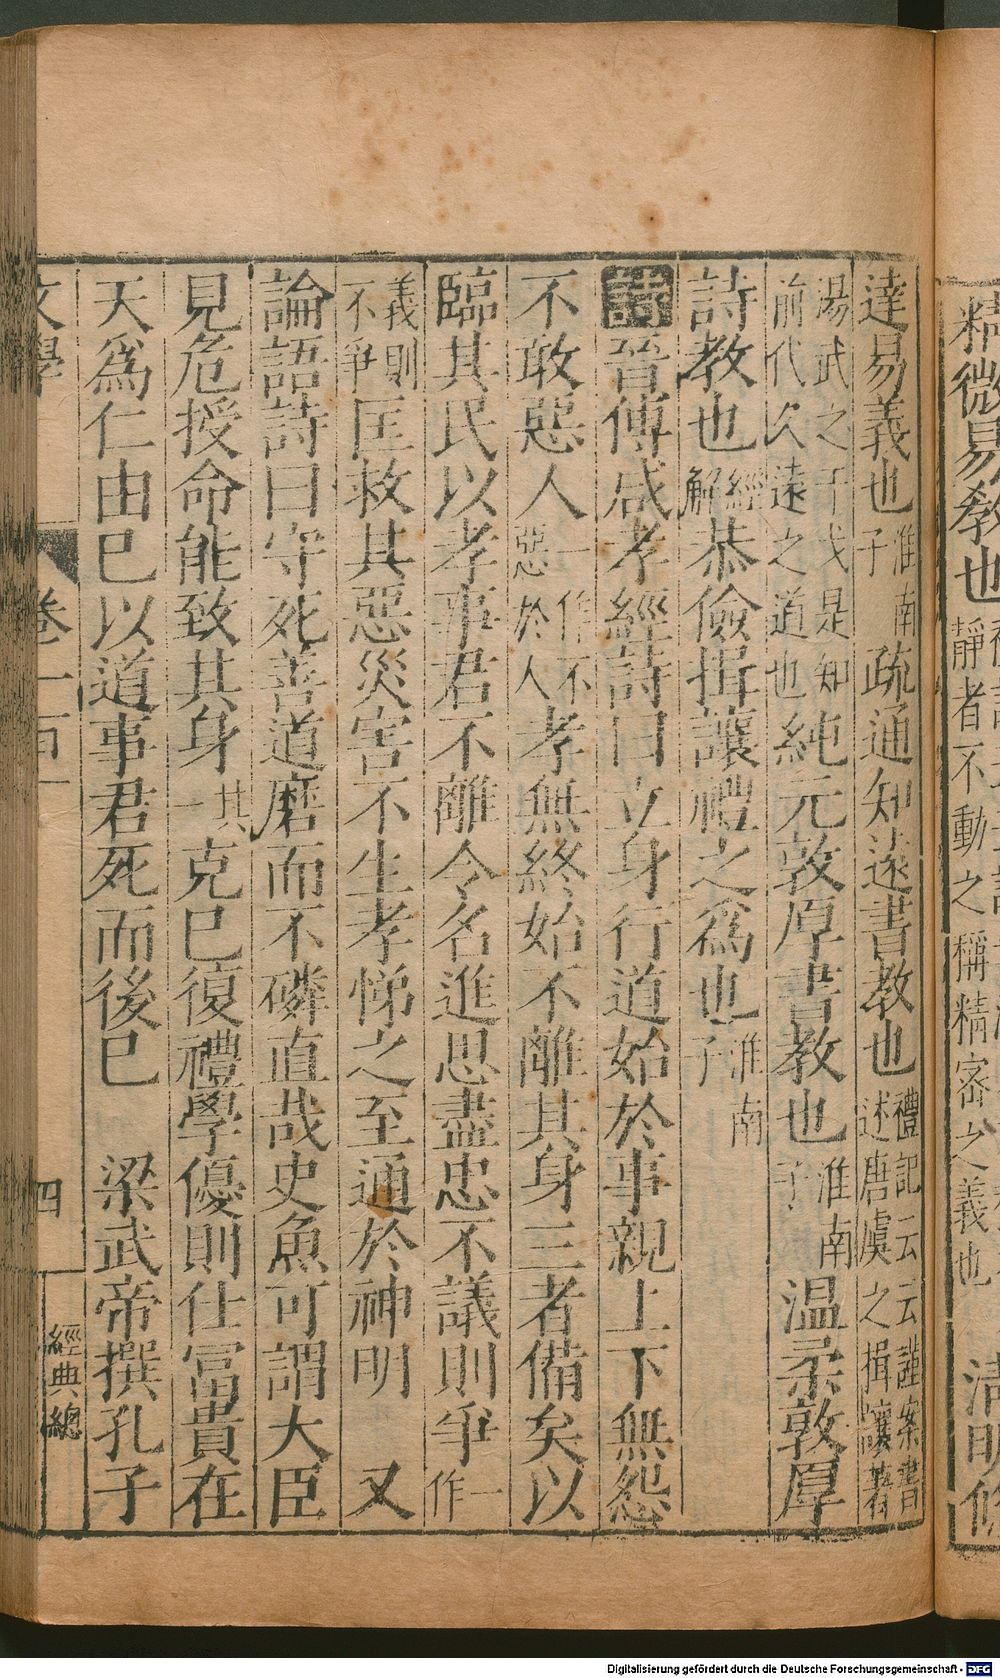 精微易教也 靜者不動之稱精密之義也 清明條
達易義也 淮南子 疏通知遠書教也 禮記云云謹案書述唐虞之揖讓著
湯武之干戈是知前代久遠之道也 純元敦厚書教也 淮南子 温柔敦厚
詩教也 經解 恭儉揖讓禮之爲也 淮南子
詩 晉傅咸孝經詩曰立身行道始於事親上下無怨
不敢惡人 一作不惡於人 孝無終始不離其身三者備矣以
臨其民以孝事君不離令名進思盡忠不議則爭 一作
義則不爭 匡救其惡災害不生孝悌之至通於神明 又
論語詩曰守死善道磨而不磷直哉史魚可謂大臣
見危授命能致其身 其一 克已復禮學優則仕富貴在
天爲仁由已以道事君死而後已 梁武帝撰孔子
文學 卷一百一 四 經典總
Digitalisierung gefördert durch die Deutsche Forschungsgemeinschaft - DFG